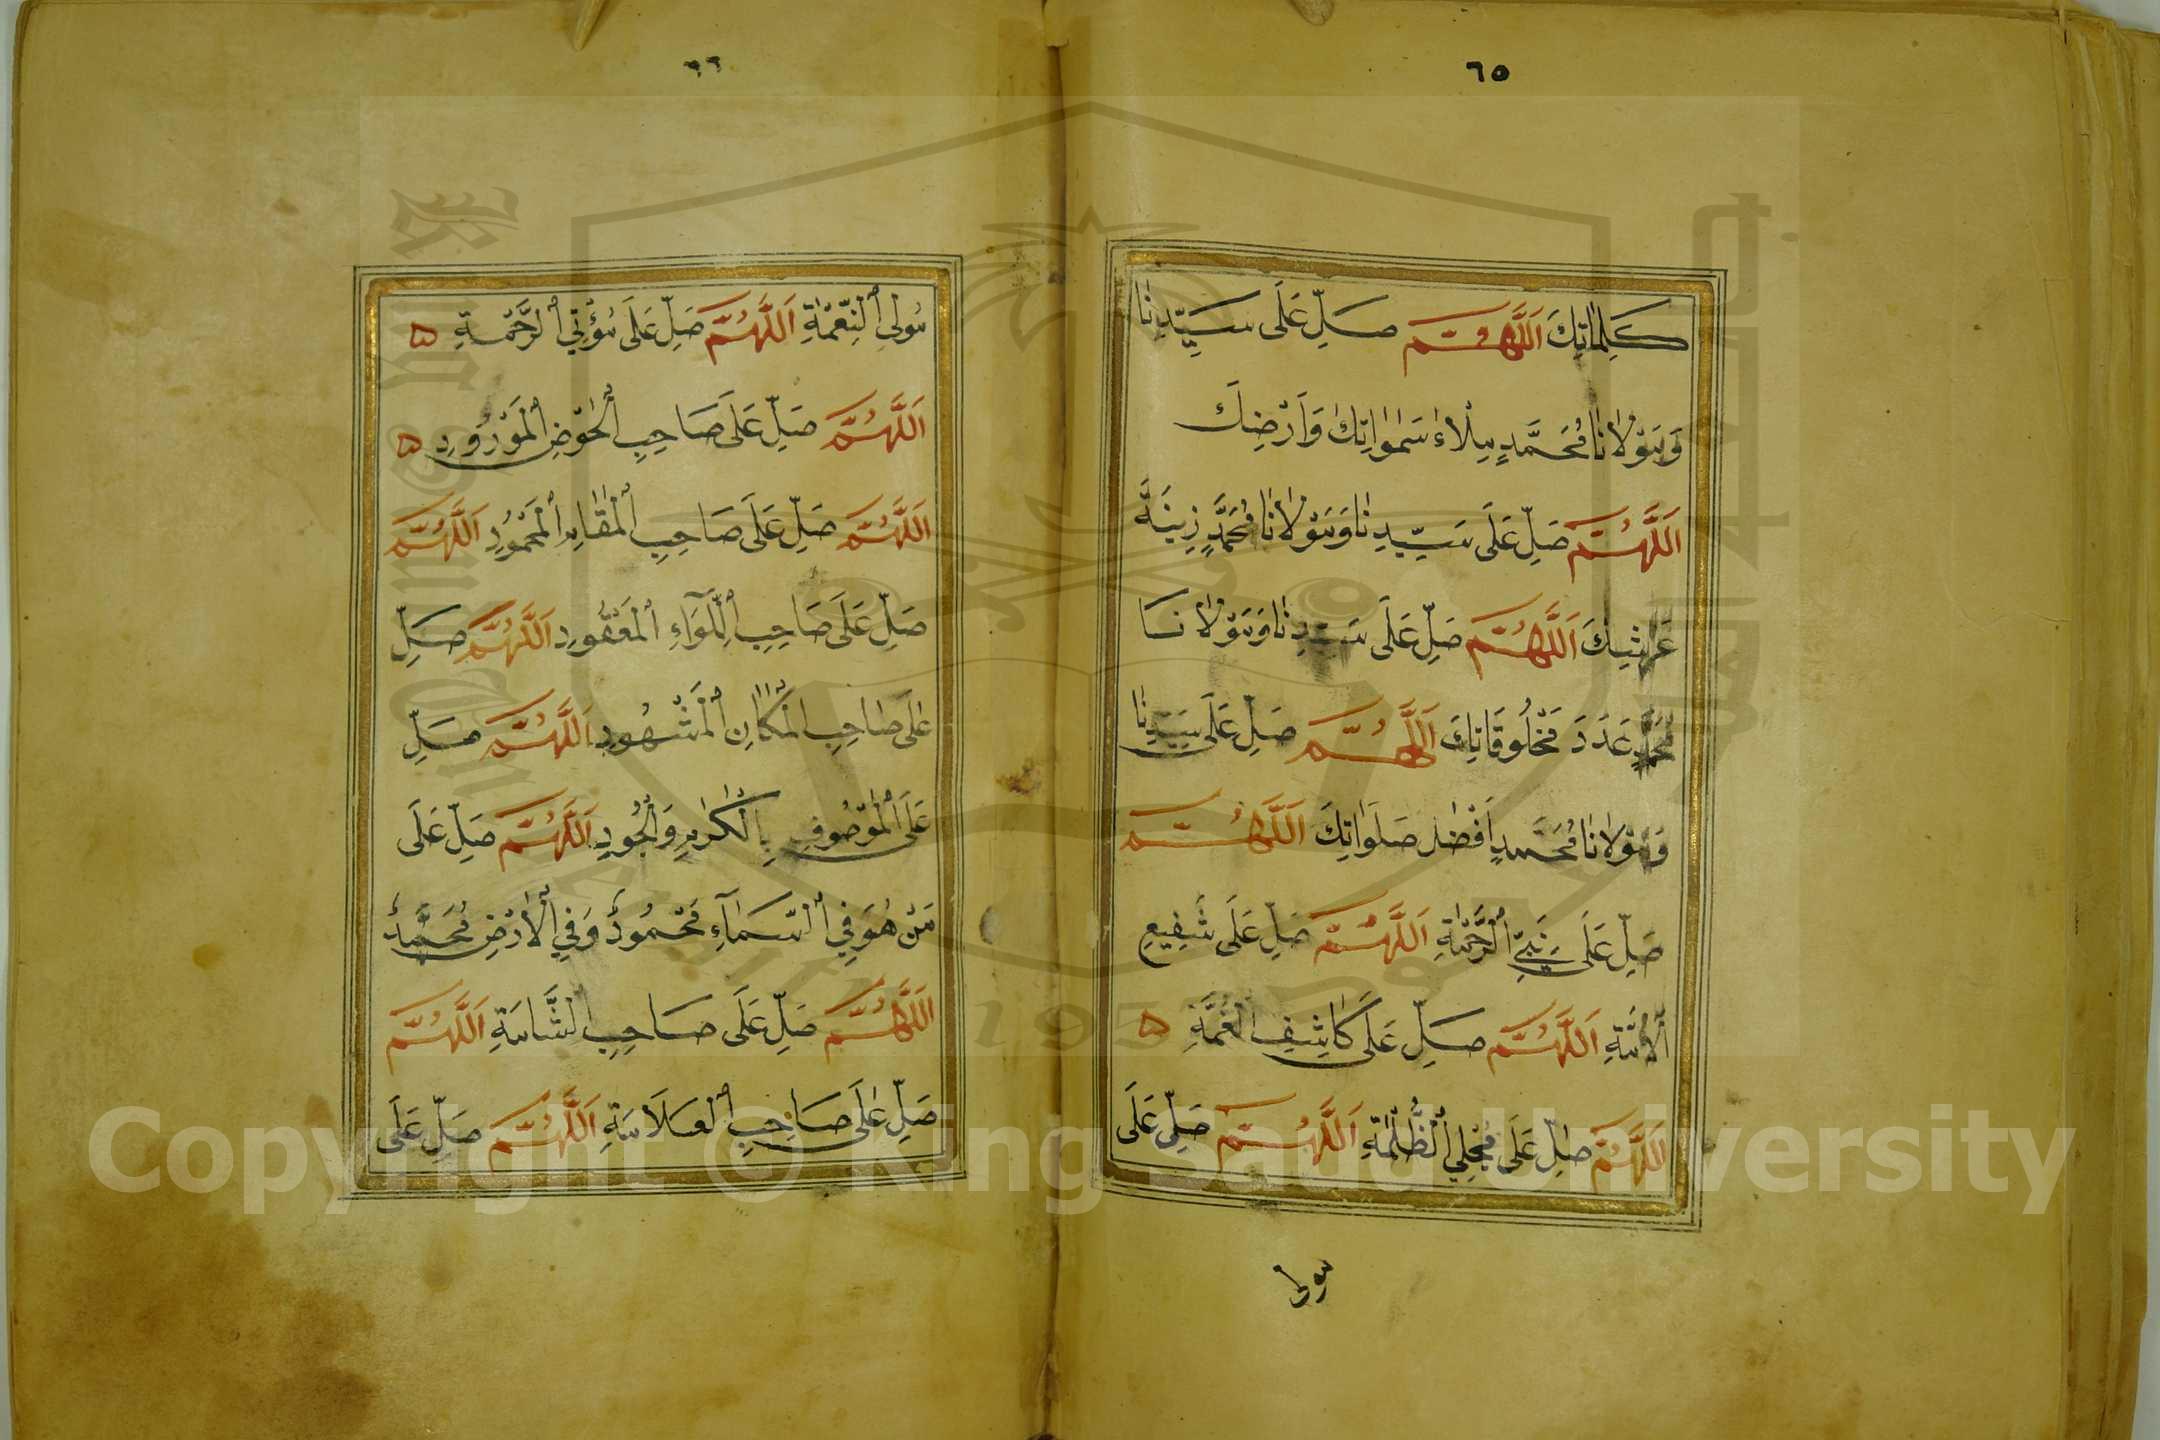 ٦٥
كَلِمَاتِكَ اَللّٰهُمَّ صَلِّ عَلَى سَيِّدِنَا
وَمَوْلَانَا مُحَمَّدٍ مِلْاءَ سَمٰوَاتِكَ وَاَرْضِكَ
اَللّٰهُمَّ صَلِّ عَلَى سَيِّدِنَا وَمَوْلَانَا مُحَمَّدٍ زِينَةَ
عَرْشِكَ اَللّٰهُمَّ صَلِّ عَلَى سَيِّدِنَا وَمَوْلَانَا
مُحَمَّدٍ عَدَدَ مَخْلُوقَاتِكَ اَللّٰهُمَّ صَلِّ عَلَى سَيِّدِنَا
وَمَوْلَانَا مُحَمَّدٍ اَفْضَلَ صَلَوَاتِكَ اَللّٰهُمَّ
صَلِّ عَلَى نَبِيِّ الرَّحْمَةِ اَللّٰهُمَّ صَلِّ عَلَى شَفِيعِ
الْاُمَّةِ اَللّٰهُمَّ صَلِّ عَلَى كَاشِفِ الْغُمَّةِ ۵
اَللّٰهُمَّ صَلِّ عَلَى مُجْلِي الظُّلْمَةِ اَللّٰهُمَّ صَلِّ عَلَى
مولى
٦٦
مُولِي النِّعْمَةِ اَللّٰهُمَّ صَلِّ عَلَى مُؤْتِي الرَّحْمَةِ ۵
اَللّٰهُمَّ صَلِّ عَلَى صَاحِبِ الْحَوْضِ الْمَوْرُودِ ۵
اَللّٰهُمَّ صَلِّ عَلَى صَاحِبِ الْمَقَامِ الْمَحْمُودِ اَللّٰهُمَّ
صَلِّ عَلَى صَاحِبِ اللِّوَآءِ الْمَعْقُودِ اَللّٰهُمَّ صَلِّ
عَلَى صَاحِبِ الْمَكَانِ الْمَشْهُودِ اَللّٰهُمَّ صَلِّ
عَلَى الْمَوْصُوفِ بِالْكَرَمِ وَالْجُودِ اَللّٰهُمَّ صَلِّ عَلَى
مَنْ هُوَ فِي السَّمَآءِ مَحْمُودٌ وَفِي الْاَرْضِ مُحَمَّدٌ
اَللّٰهُمَّ صَلِّ عَلَى صَاحِبِ الشَّامَةِ اَللّٰهُمَّ
صَلِّ عَلَى صَاحِبِ الْعَلَامَةِ اَللّٰهُمَّ صَلِّ عَلَى
Copyright © King Saud University